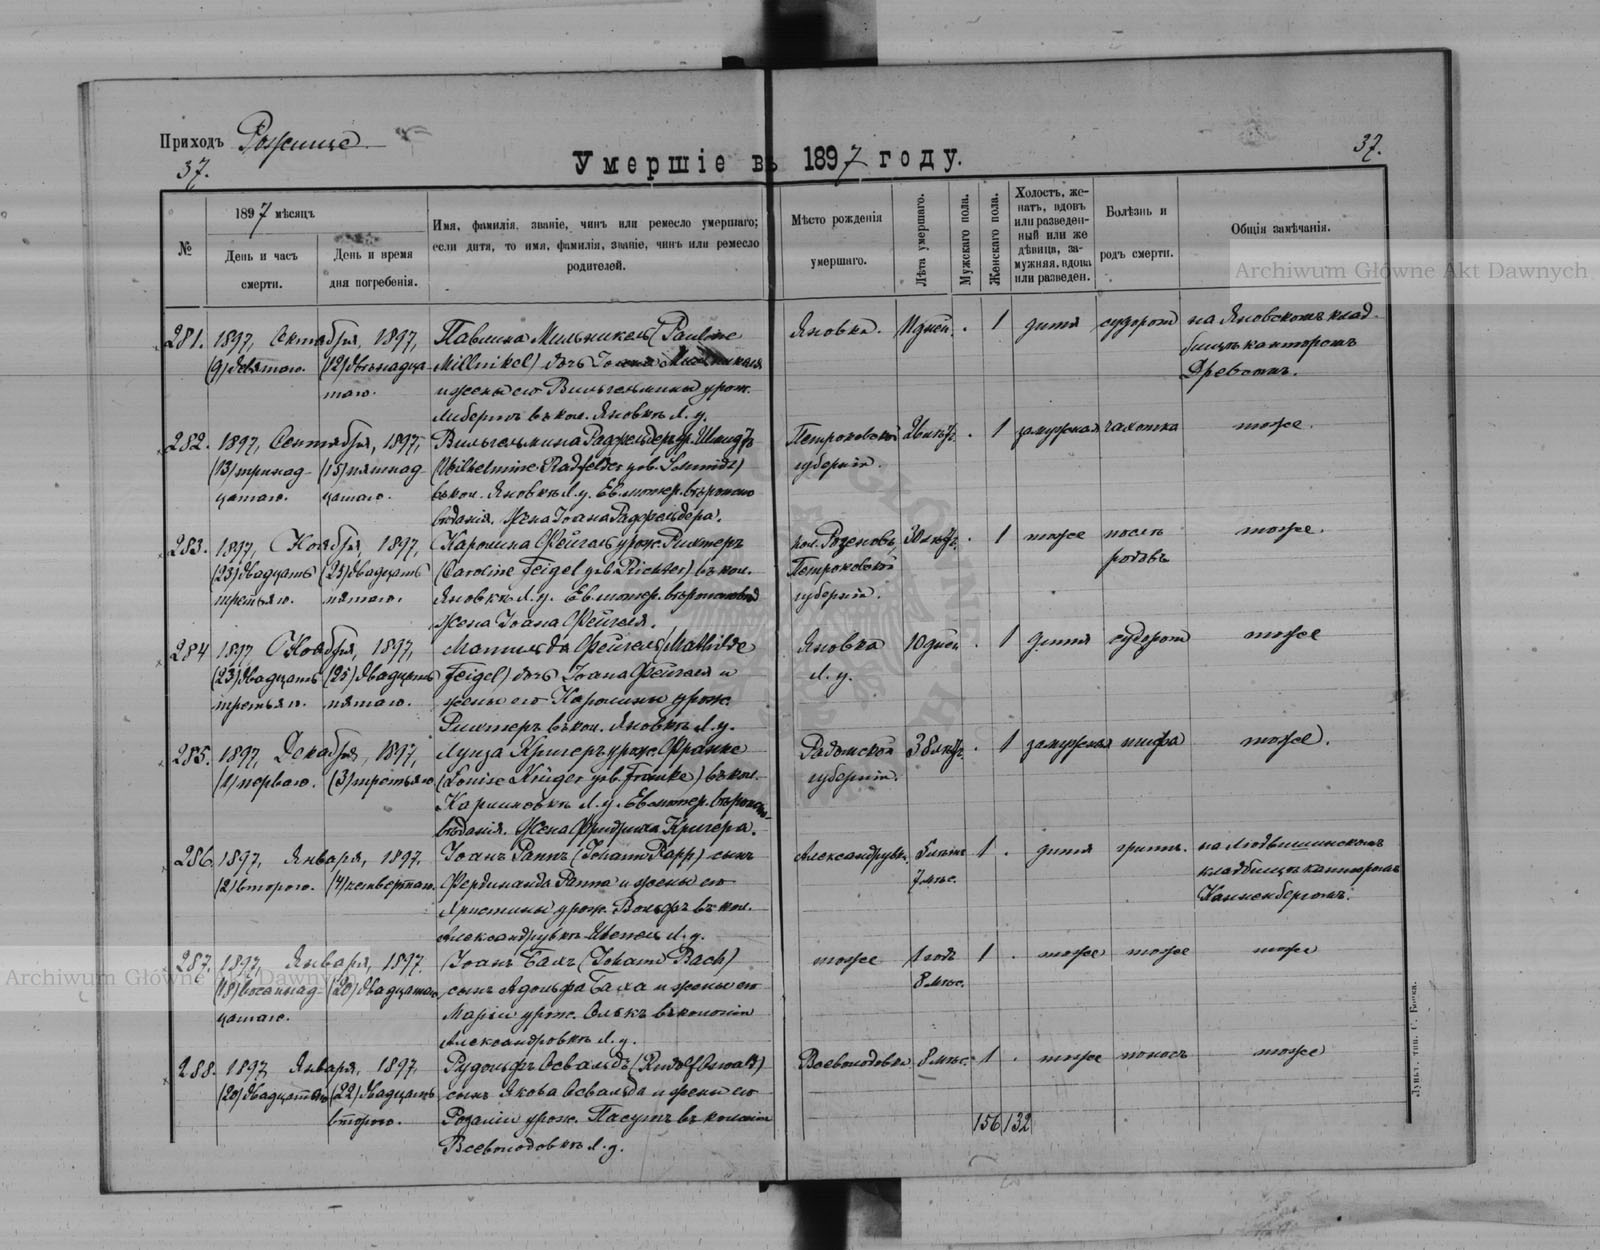 Приходъ Рожище
37.
37.
Умершіе въ 1897 году.
№
1897 мѣсяцъ
День и часъ
смерти.
День и время
дня погребенія.
Имя, фамилія, званіе, чинъ или ремесло умершаго;
если дитя, то имя, фамилія, званіе, чинъ или ремесло
родителей.
Мѣсто рожденія
умершаго.
Лѣта умершаго.
Мужскаго пола.
Женскаго пола.
Холостъ, же-
натъ, вдовъ
или разведен-
ный или же
дѣвица, за-
мужняя, вдова
или разведен.
Болѣзнь и
родъ смерти.
Общія замѣчанія.
Archiwum Główne Akt Dawnych
281. 1897, Октября, 1897, Павлина Мильникель (Pauline Яновка. 11 дней. . 1 дитя судорот на Яновскомъ клад-
(9) девятаго. (12) двѣнадца- Millnikel) дочь Іоана Мильникеля бищѣ канторомъ
таго. и жены его Вильгельмины урож. Древсомъ.
Либертъ въ кол. Яновкѣ Л. у.
282. 1897, Сентября, 1897, Вильгельмина Радфельдер ур. Шмидтъ Петроковской . 1 замужная чахотка тоже.
(13) тринад- (15) пятнад- (Wilhelmine Radfelder geb. Schmidt) губерніи.
цатаго. цатаго. въ кол. Яновкѣ Л. у. Ев. лютер. вѣроиспо
вѣданія. Жена Іоана Радфельдера.
283. 1897, Ноября, 1897, Каролина Фейгель урож. Рихтеръ кол. 30 лѣтъ. . 1 тоже послѣ тоже.
(23) двадцать (25) двадцать (Caroline Feigel geb. Richter) въ кол. Петроковской родовъ
третьяго. пятаго. Яновкѣ Л. у. Ев. лютер. губерніи.
Жена Іоана Фейгеля.
284 1897 Ноября, 1897, Матильда Фейгель (Mathilde Яновка 10 дней . 1 дитя судорот тоже
(23) двадцать (25) двадцать Feigel) дочь Іоана Фейгеля и Л. у.
третьяго. пятаго. жены его Каролины урож.
Рихтеръ въ кол. Яновкѣ Л. у.
285. 1897, Декабря, 1897, Луиза Кригеръ урож. Франке Радомской 38 лѣтъ. . 1 замужная тифа тоже.
(1) перваго. (3) третьяго (Louise Krüger geb. Franke) въ кол. губерніи.
Л. у. Ев. лютер. вѣроиспо-
вѣданія. Жена Фридриха Кригера.
286. 1897, Января, 1897. Іоанъ Раппъ (Johann Rapp) сынъ Александрувк. 1 . дитя гриппъ. на
(2) второго. (4) четвертаго. Фердинанда Раппа и жены его 7 мѣс. кладбищѣ канторомъ
Христины урож. Вольфъ въ кол. Канненбергомъ.
Александрувкѣ Л. у.
287. 1897, Января, 1897. Іоанъ Бахъ (Johann Bach) тоже 1 годъ 1 . тоже тоже тоже
(18) восемнад- (20) двадцатаго сынъ Адольфа Баха и жены его 8 мѣс.
цатаго. Маріи урож. въ колоніи
Александровкѣ Л. у.
288. 1897, Января, 1897 Рудольфъ Освальдъ (Rudolf Oswald) Всеволодовка 8 мѣс. 1 . тоже поносъ тоже
(20) двадцатаго (22) двадцать сынъ Якова Освальда и жены его
второго. Розаліи урож. въ колоніи
Всеволодовкѣ Л. у.
156 132
Archiwum Główne Akt Dawnych